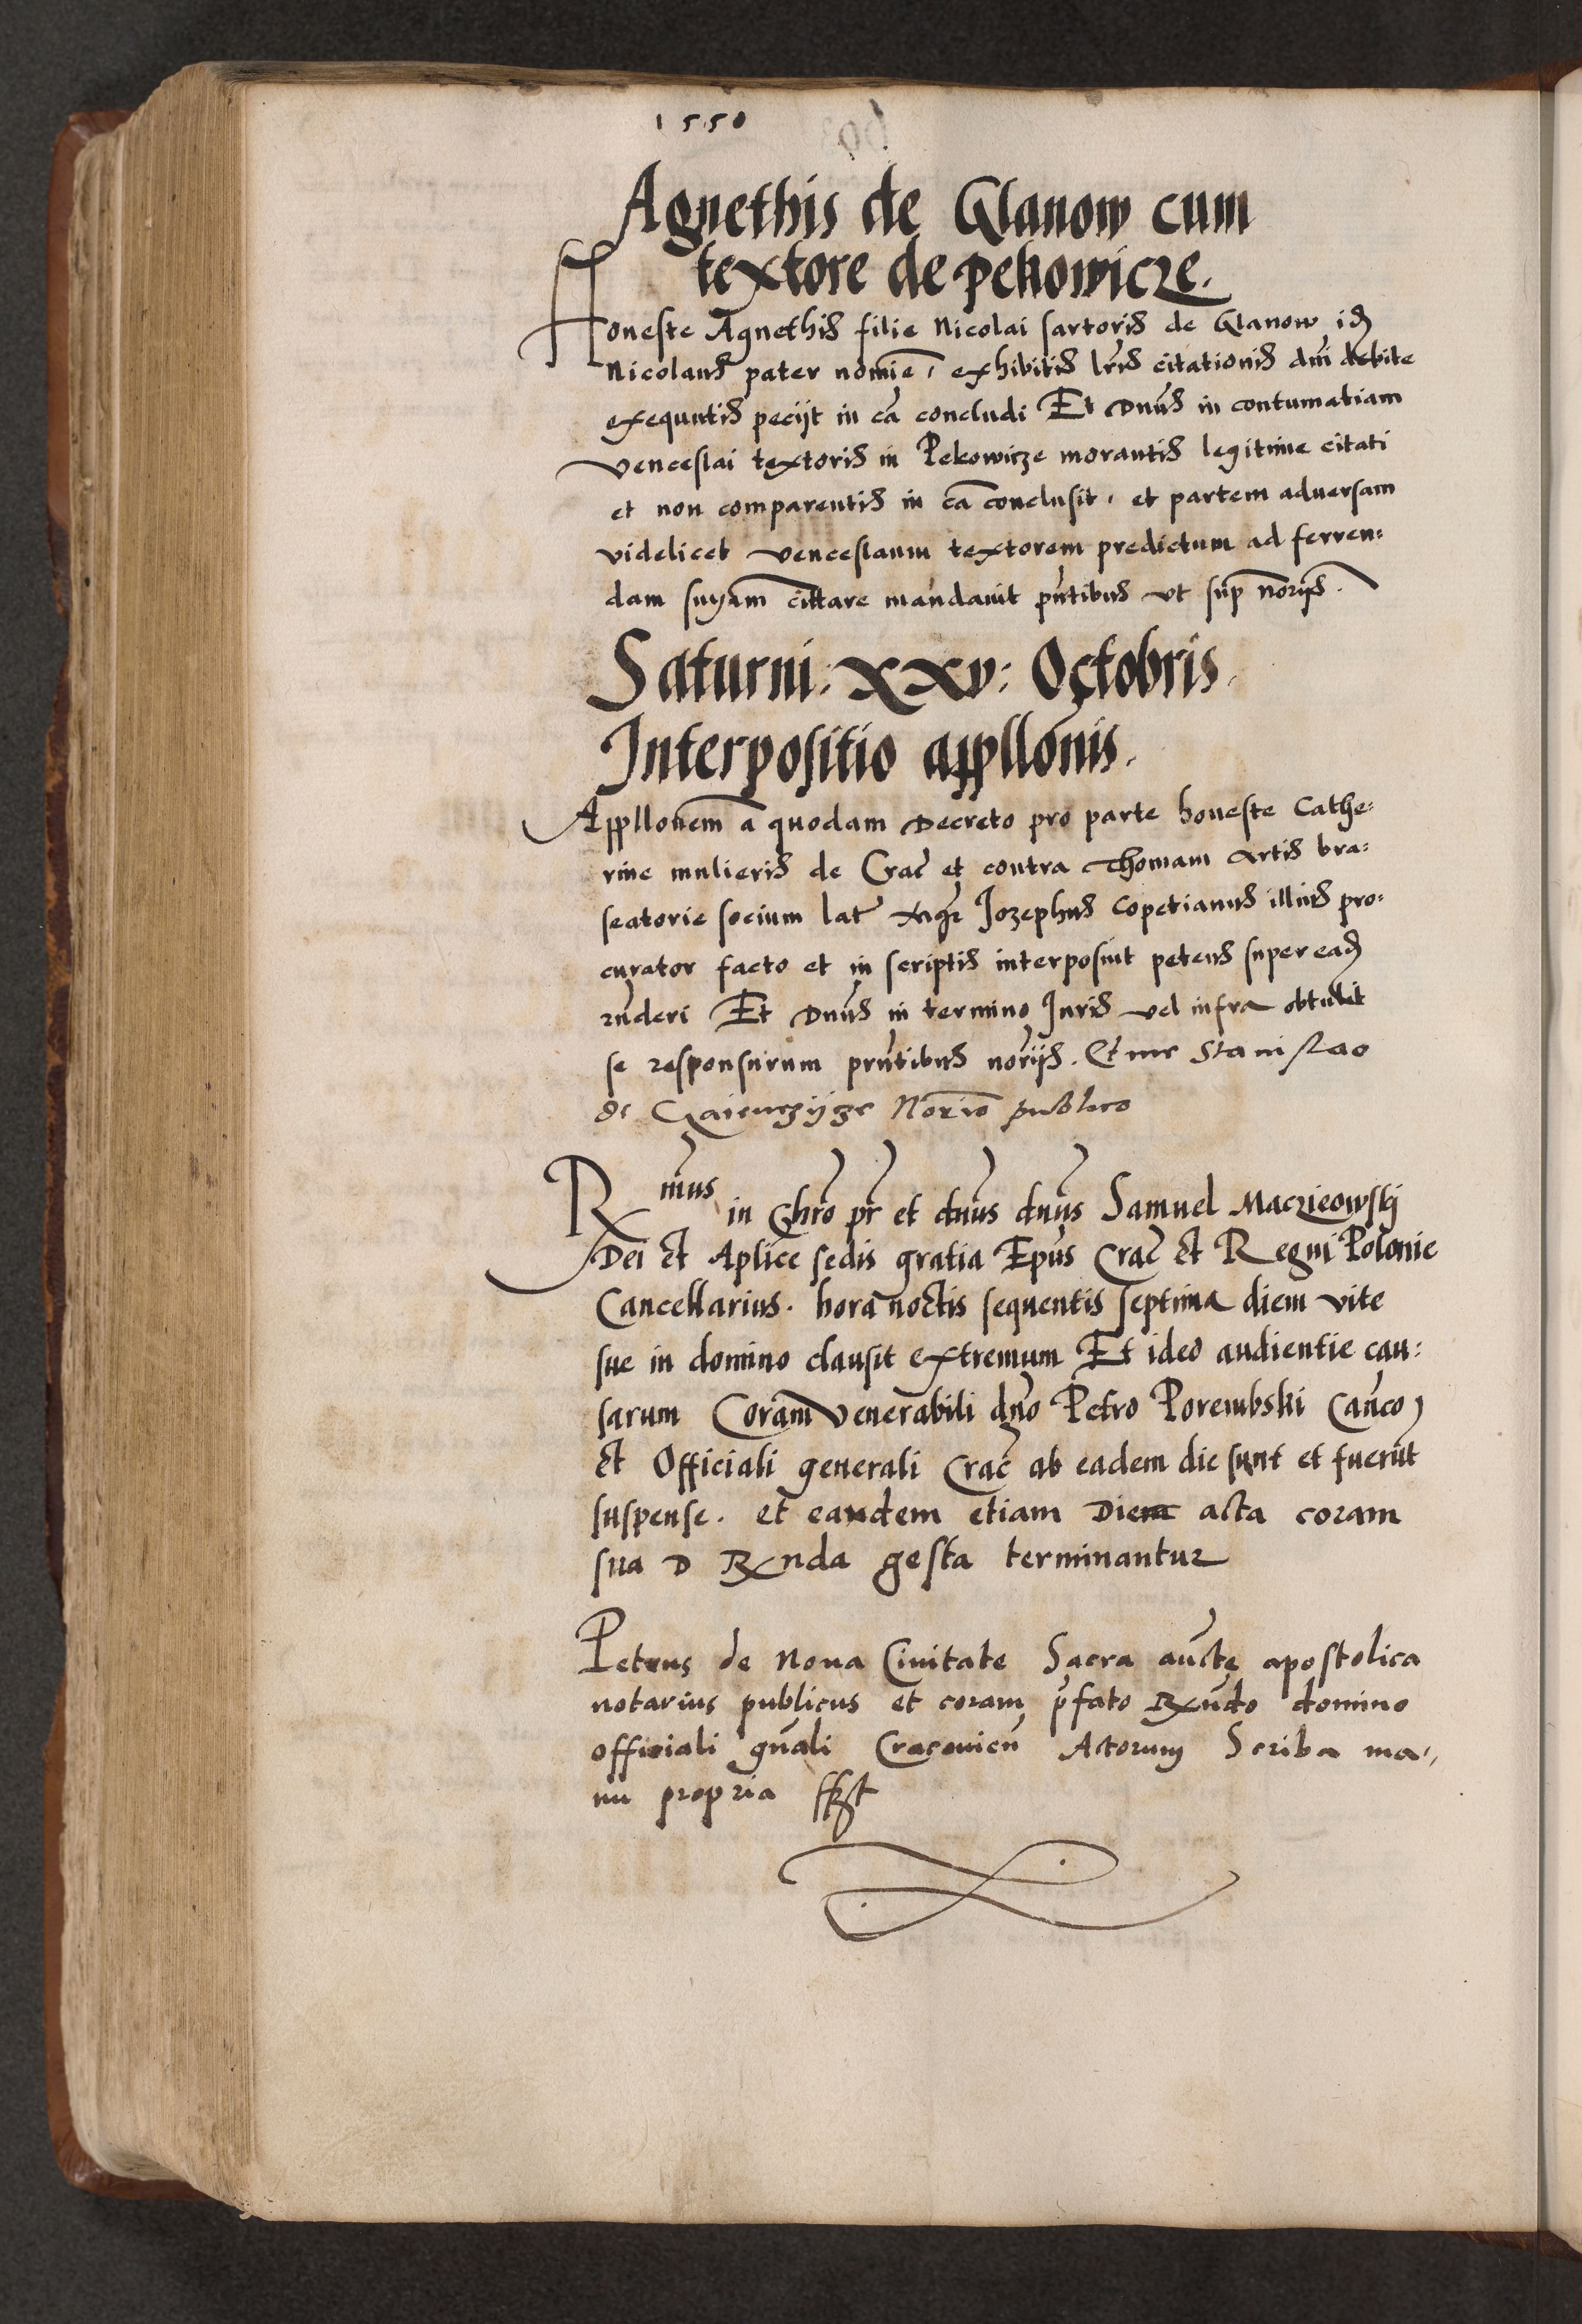 1550
Agnethis de Glanow cum
textore de pekowicze.
Honeste Agnethis filie Nicolai sartoris de Glanow id
Nicolaus pater nomīe, exhibitis lrīs citationis dnī debite
exequutis peciit in cā concludi Et Dnūs in contumatiam
venceslai textoris in Pekowicze morantis legitime citati
et non comparentis in cā conclusit, et partem aduersam
videlicet venceslaum textorem predictum ad ferren=
dam snīam citare mandauit pñtibus vt sup norijs.
Saturni: xxv: Octobris.
Interpositio appllōnis.
Appllonem̄ a quodam Decreto pro parte honeste Cathe=
rine mulieris de Crac̄ et contra Thomam Artis bra=
seatorie socium lat mgr Jozephus Copetianus illius pro=
curator facto et in scriptis interposuit petens super ead
rn̄deri Et Dnūs in termino Juris vel infra obtulit
se responsurum prn̄tibus norijs. Et me Stanislao
de norio publico
Rmūs in Chrō pr̄ et dnūs dnūs Samuel Maczieowskj
Dei et Aplice sedis gratia Epūs Crac̄ et Regni Polonie
Cancellarius. hora noctis sequentis septima diem vite
sue in domino clausit extremum Et ideo audientie cau=
sarum Coram Venerabili dnō Petro Porembski Canco
et Officiali generali Crac̄ ab eadem die sunt et fuerūt
suspense. et eandem etiam Diem acta coram
sua D Rnda gesta terminantur
Petrus de Noua Ciuitate Sacra aucte apostolica
notarius publicus et coram p̄fato Rn̄do domino
officiali gn̄ali Cracouien̄ Actorum Scriba ma=
nu propria sszt